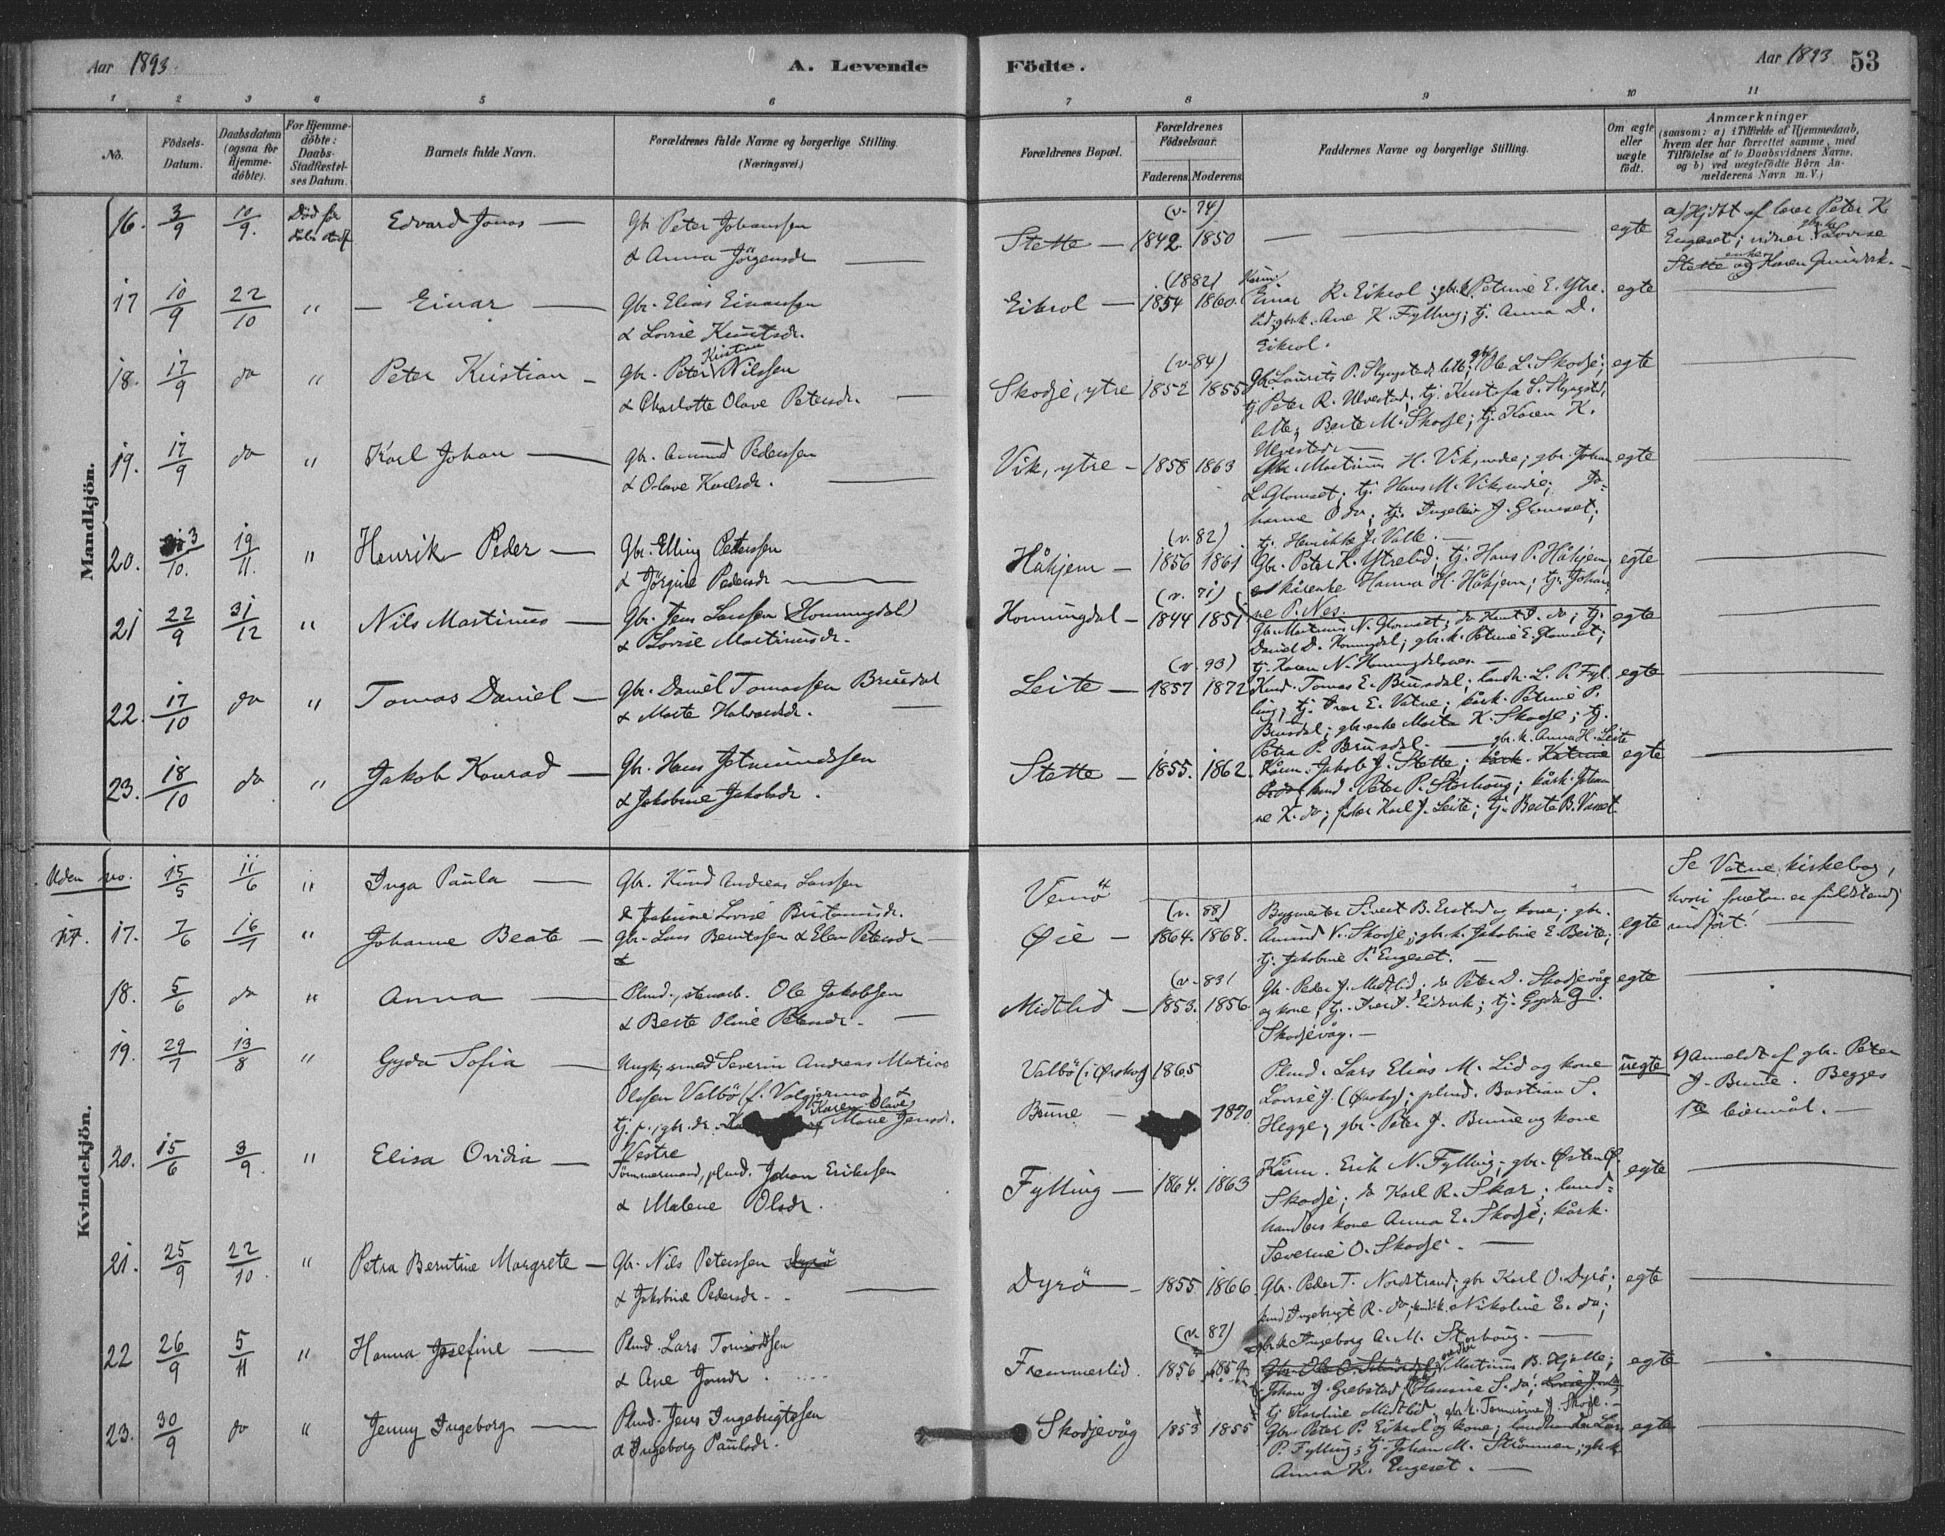 Aar 1893.
A. Levende Födte.
Aar 1893 53
1 2 3 4 5 6 7 8 9 10 11
No.
Födsels-Datum.
Daabsdatum (ogsaa for Hjemme-döbte).
For Hjemme-döbte: Daabs-Stadfæstel-ses Datum.
Barnets fulde Navn.
Forældrenes fulde Navne og borgerlige Stilling.
(Næringsvei.)
Forældrenes Bopæl.
Forældrenes Födselsaar.
Faderens. Moderens.
Faddernes Navne og borgerlige Stilling.
Om ægte eller uægte født.
Anmærkninger
(saasom: a) i Tilfælde af Hjemmedaab,
hvem der har forrettet samme, med
Tilföielse af to Daabsvidners Navne,
og b) ved uægtefödte Børn An-
melderens Navn m. V.)
Mandkjön.
16. 3/9 10/9. Död før Edvard Jonas — Gbr. Peter Johanssen
& Anna Jörgensdr. —
Stette — (v. 74) 1842 1850 — egte
a) Hjdbt af lærer Peter K.
Engeset; vidner Lovise
Stette og enke Karen
17 10/9 22/10 " — Einar — Gbr. Elias Einarssen
& Lovise Knutsdr.
Eikrol — (1882) 1854 1860. Kårm. Einar R. Eikrol; gbr.k. Petrine E. Ytre-
lid; gbr.k. Ane K. Fylling; tj. Anna D.
Eikrol. egte —
18. 17/9 do " Peter Kristian — Gbr. Peter Kristian Nilssen
& Charlotte Olave Petersdr. —
Skodje, ytre (v. 84) 1852 1855 Gbr. Laurits P. Slyngstad, lille; gbr. Ole L. Skodje;
tj. Peter R. Ulvestad; tj. Kristofa L. Slyngstd,
lille; Berte M. Skodje; tj. Karen K.
Ulvestad — egte —
19. 17/9 do " Karl Johan — Gbr. Amund Pedersen
& Olave Karlsdr. —
Vik, ytre — 1858 1863 Gbr. Martinus H. Vik, indre; gbr. Johan
L. Glomset; tj. Hans M. Vik, indre; Jo-
hanne O. do; tj. Ingeleiv J. Glomset;
tj. Henrikke J. Valle. — egte —
20. 3/10. 19/11. " Henrik Peder — Gbr. Elling Peterssen
& Jörgine Pedersdr. —
Håhjem — (v. 82) 1856 1861 Gbr. Peter K. Ytrelid; tj. Hans P. Håhjem,
kårenke Hanna H. Håhjem; tj. Johan-
ne P. Nes. — egte —
21 22/9 31/12 " Nils Martinus — Gbr. Jens Larssen (Honningdal)
& Lovise Martinusdr.
Honningdal — (v. 71) 1844 1851 Gbr. Martinus N. Glomset; do Knut D. do; tj.
Daniel D. Honningdal; gbr.k. Petrine E. Glomset;
tj. Karen N. Honningdalsnes. — egte —
22. 17/10 do " Tomas Daniel — Gbr. Daniel Tomassen Brusdal
& Marte Halvardsdr. —
Leite — (v. 93) 1857 1872 Kårmd. Tomas E. Brusdal; landh. L. P. Fyl-
ling; tj. Ivar E. Vatne; kårk. Petrine P.
Brusdal; gbr.enke Marta K. Skodje; tj.
Petra P. Brusdal. — egte —
23. 18/10 do " Jakob Konrad — Gbr. Hans Jetmundssen
& Jakobine Jakobsdr.
Stette — 1855. 1862. gbr.k. Anna H. Leite
Kårm. Jakob J. Stette; kårk. Katrine
kmd. Peter P. Storhaug; kårk. Johan-
ne K. do; fisker Karl J. Leite; tj. Berte B. egte —
Kvindekjön.
Uden no. 15/5 11/6 " Inga Paula — Gbr. Knud Andreas Larssen
& Lovise
Vemö — Se Vatne kirkebog,
hvori foretn. er fuldstændig
indført!
17. 17. 7/6 16/7 " Johanne Beate — Gbr. Lars Berntssen & Elen Petersdr. —
Øie — (v. 88) 1864. 1868. Bygmester Sivert B. Erstad og kone; gbr.
Amund V. Skodje; gbr.k. Jakobine E. Beite;
tj. Jakobine P. Engeset. — egte —
18. 5/6 do " Anna — Plmd., stenarb. Ole Jakobsen
& Berte Oline Petersdr. —
Midtlid — (v. 83) 1853. 1856. Gbr. Peter J. Midtlid; do Peter D. Skodjevåg
og kone; tj. Eidsvik; tj. Gyda G.
Skodjevåg. — egte —
19. 29/7 13/8 " Gyda Sofia — Ungk., smed Severin Andreas Matias
Olssen Valbö (f. Valgjermo) &
tj. p., gbr.dr. Karen Olave Marie Jensdr.
Vestre
Valbö (i Ørskog) 1865
Brune — 1870. Plmd. Lars Elias M. Lid og kone
Lovise J. (Ørskog); plmd. Bastian S.
Hegge; gbr. Peter J. Brune og kone uegte
b) Anmeldt af gbr. Peter
J. Brune. Begges
1te leiermål. —
20. 15/6 3/9. " Elisa Ovidia — Tömmermand, plmd. Johan Erikssen
& Malene Olsdr.
Fylling — 1864. 1863 Kårm. Erik N. Fylling; gbr. Østen Ø.
Skodje; do Karl R. Skar; land-
handlers kone Anna E. Skodje; kårk.
Severine O. Skodje. — egte —
21. 25/9 22/10. " Petra Berntine Margrete — Gbr. Nils Peterssen Dyrö
& Jakobine Pedersdr. —
Dyrö — 1855 1866 Gbr. Peder T. Nordstrand; gbr. Karl O. Dyrö;
Ingebrigt R. do; Nikoline E. do;
gbr.k. Ingeborg A. M. Storhaug. — egte —
22 26/9 5/11 " Hanna Josefine — Plmd. Lars
& Ane Jonsdr.
Fremmerlid. (v. 87) 1856 1859 Martinus B. Hjelle;
Johan J. Grebstad; Hansine S. do;
tj. Karoline Midtlid; gbr.k. J. Skodje. — egte —
23. 30/9 do " Jenny Ingeborg — Plmd. Jens Ingebrigtssen
& Ingeborg Paulsdr.
Skodjevåg 1853 1855 Gbr. Peter P. Eikrol og kone; landhandler Lars
P. Fylling; tj. Johan M. Strömmen; gbr.k.
Anna K. Engeset. — egte —